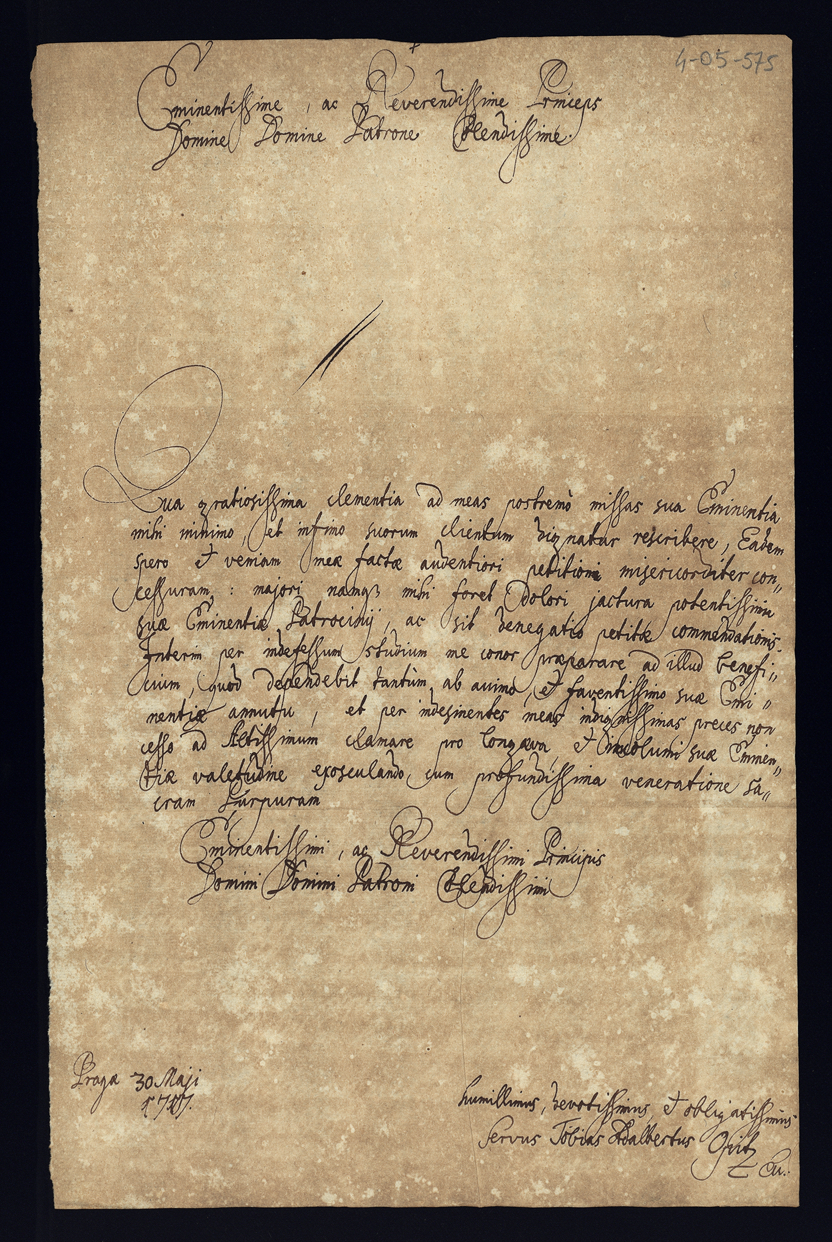 4-05-575
Eminentissime, ac Reverendissime Princeps
Domine Domine Patrone Colendissime.
Qua gratiosissima clementia ad meas postremò missas sua Eminentia
mihi minimo, et infimo suorum clientum dignatur rescribere, Eadem
spero et veniam meæ factæ audentiori petitioni misericorditer con„
cessuram: majori namq3 mihi foret dolori jactura potentissimi
suæ Eminentiæ Patrocinij, ac sit denegatio petitæ commendationis.
Interim per indefessum studium me conor præparare ad illud benefi„
cium, quod dependebit tantùm ab animo, et faventissimo suæ Emi„
nentiæ annutu, et per indesinentes meas indignissimas preces non
cesso ad Altissimum clamare pro longæva, et incolumi suæ Eminen„
tiæ valetudine exosculando cum profundissima veneratione sa„
cram Purpuram
Eminentissimi, ac Reverendissimi Principis
Domini Domini Patroni Colendissimi
Pragæ 30 Maji
humillimus, devotissimus, et obligatissimus
servus Tobias Adalbertus